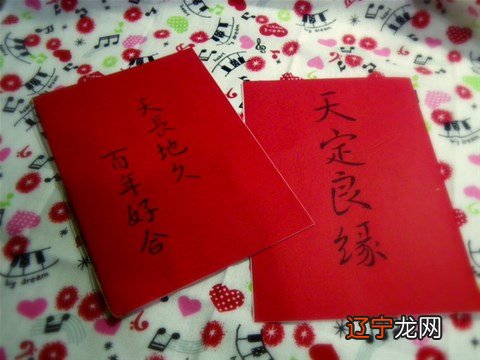 天長地久
百年好合
天定良缘
big dream
by dream
辽宁龙网